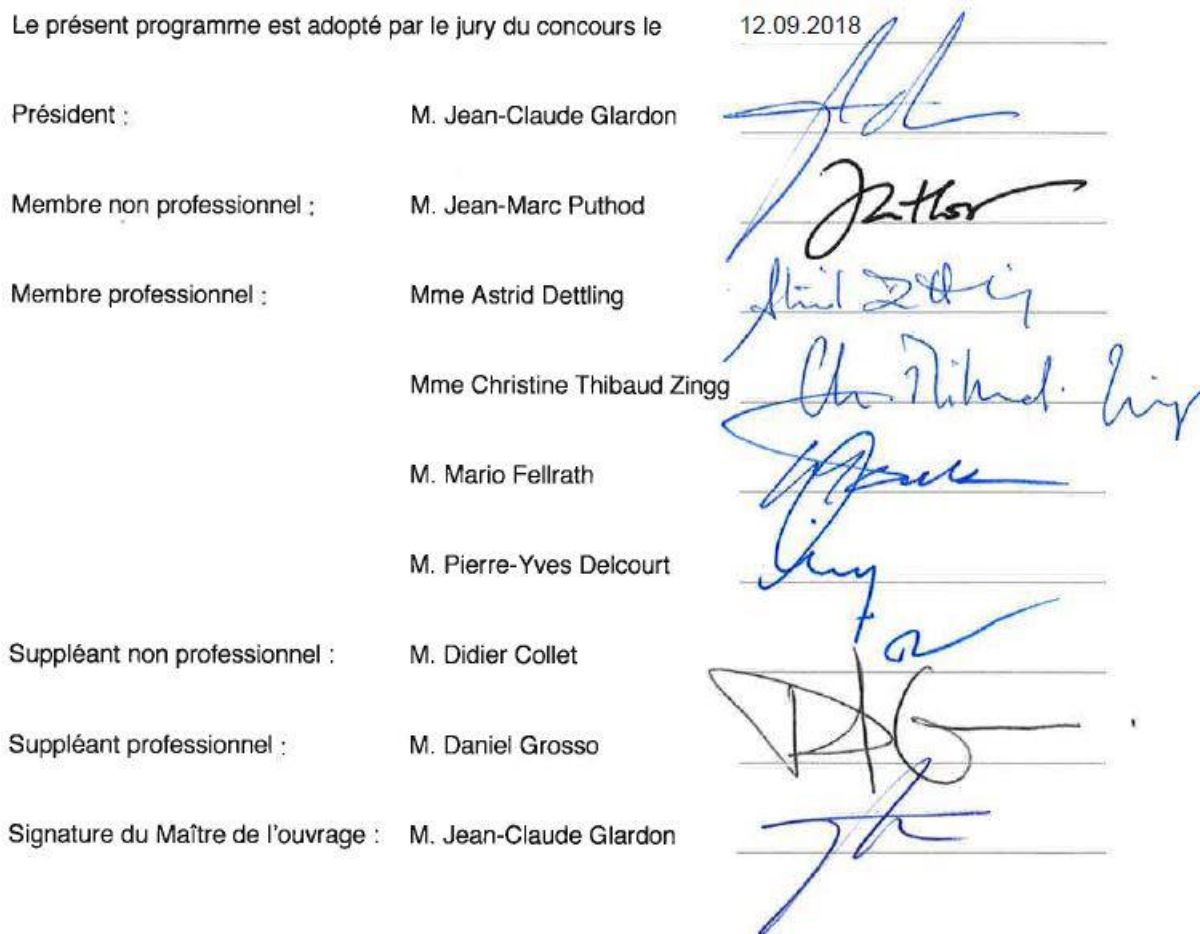 Le présent programme est adopté par le jury du concours le 12.09.2018
Président : M. Jean-Claude Glardon
Membre non professionnel : M. Jean-Marc Puthod
Membre professionnel : Mme Astrid Dettling
Mme Christine Thibaud Zingg
M. Mario Fellrath
M. Pierre-Yves Delcourt
Suppléant non professionnel : M. Didier Collet
Suppléant professionnel : M. Daniel Grosso
Signature du Maître de l'ouvrage : M. Jean-Claude Glardon